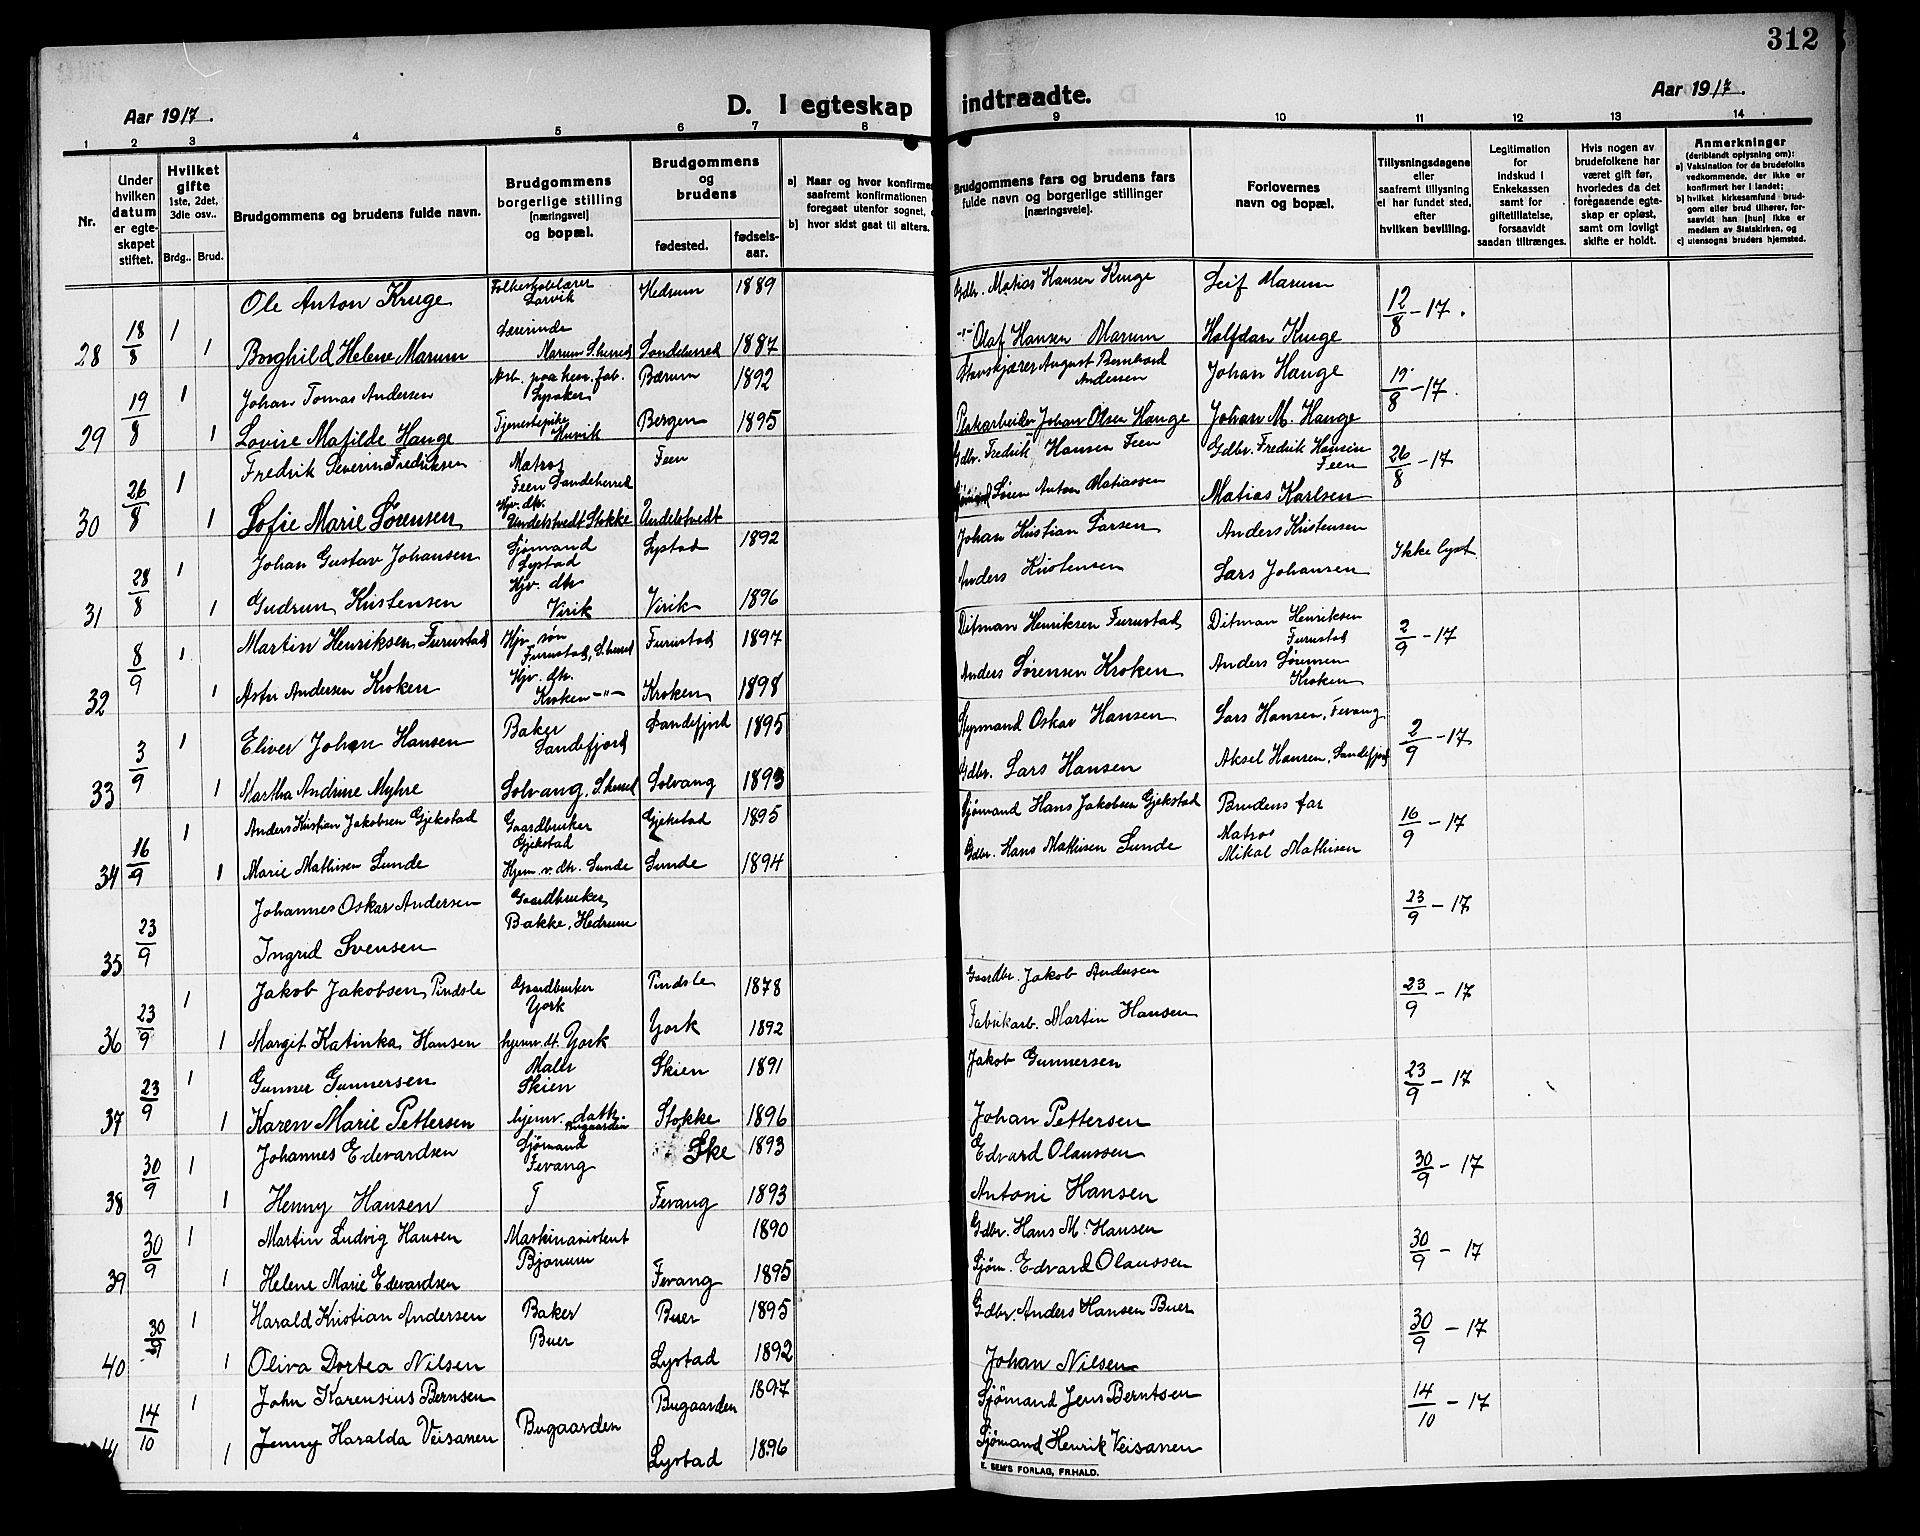 312
Aar 1917.
D. I egteskap indtraadte.
Aar 1917.
1 2 3 4 5 6 7 8 9 10 11 12 13 14
Nr.
Under hvilken datum er egteskapet stiftet.
Hvilket gifte 1ste, 2det, 3die osv..
Brdg.. Brud.
Brudgommens og brudens fulde navn.
Brudgommens borgerlige stilling [næringsvei] og bopæl.
Brudgommens og brudens
fødested. fødselsaar.
a] Naar og hvor konfirmer
saafremt konfirmationen
foregaaet utenfor sognet,
b] hvor sidst gaat til alters.
Brudgommens fars og brudens fars fulde navn og borgerlige stillinger [næringsveie].
Forlovernes navn og bopæl.
Tillysningsdagene eller saafremt tillysning ei har fundet sted, efter hvilken bevilling.
Legitimation for Indskud i Enkekassen samt for giftetillatelse, forsaavidt saadan tiltrænges.
Hvis nogen av brudefolkene har været gift før, hvorledes da det foregaaende egteskap er opløst, samt om lovligt skifte er holdt.
Anmerkninger
(deriblandt oplysning om):
a] Vaksination for de brudefolks vedkommende, der ikke er konfirmert her i landet;
b] hvilket kirkesamfund brudgom eller brud tilhører, forsaavidt han [hun] ikke er medlem av Statskirken, og
c] utensogns bruders hjemsted.
Ole Anton Kruge Folkeskolelærer Larvik Hedrum 1889 Gdbr. Matias Hansen Kruge Leif Marum
28 18/8 1 1 Borghild Helene Marum Lærerinde Marum S.herred Sandeherred 1887 -"- Olaf Hansen Marum Halfdan Kruge 12/8-17.
Johan Tomas Andersen Arb. paa kem. fab. Lysaker Bærum 1892 August Bernhard Andersen Johan Hauge
29 19/8 1 1 Lovise Matilde Hauge Tjenestepike Huvik Bergen 1895 Johan Olsen Hauge Johan M. Hauge 19/8-17.
Fredrik Severin Fredriksen Matros Feen Sandeherred Feen Gdbr. Fredrik Hansen Feen Gdbr. Fredrik Hansen Feen
30 26/8 1 1 Sofie Marie Sørensen Hjv. dtr. Undelstvedt Stokke Undelstvedt Sjømand Søren Anton Matiassen Matias Karlsen 26/8-17
Johan Gustav Johansen Sjømand Lystad Lystad 1892 Johan Kristian Larsen Anders Kristensen
31 28/8 1 1 Gudrun Kristensen Hjv. dtr. Virik Virik 1896 Anders Kristensen Lars Johansen Ikke lyst
Martin Henriksen Furustad Hjv. søn Furustad, S.herred Furustad 1897 Ditman Henriksen Furustad Ditman Henriksen Furustad
32 8/9 1 1 Astri Andersen Kroken Hjv. dtr. Kroken -"- Kroken 1898 Anders Sørensen Kroken Anders Sørensen Kroken 2/9-17
Eliver Johan Hansen Baker Sandefjord Sandefjord 1895 Styrmand Oskar Hansen Lars Hansen, Fevang
33 3/9 1 1 Martha Andrine Myhre Solvang, S.herred Solvang 1893 Gdbr. Lars Hansen Aksel Hansen, Sandefjord 2/9-17
Anders Kristian Jakobsen Gjekstad Gaardbruker Gjekstad Gjekstad 1895 Sjømand Hans Jakobsen Gjekstad Brudens far
34 16/9 1 1 Marie Mathisen Sunde Hjem v. dtr. Sunde Sunde 1894 Gdbr. Hans Mathisen Sunde Matros Mikal Mathisen 16/9-17
Johannes Oskar Andersen Gaardbruker Bakke, Hedrum
35 23/9 Ingrid Svensen 23/9-17
Jakob Jakobsen Pindsle Gaardbruker York Pindsle 1878 Gaardbr. Jakob Andersen
36 23/9 1 1 Margit Katinka Hansen hjemv. dt. York York 1892 Fabrikarb. Martin Hansen 23/9-17
Gunner Gunnersen Maler Skien Skien 1891 Jakob Gunnersen
37 23/9 1 1 Karen Marie Pettersen hjemv. datt. Bugaarden Stokke 1896 Johan Pettersen 23/9-17
Johannes Edevardsen Sjømand Fevang Ske 1893 Edvard Olaussen
38 30/9 1 1 Henny Hansen T Fevang 1893 Antoni Hansen 30/9-17
Martin Ludvig Hansen Maskinasistent Bjønnum 1890 Gdbr. Hans M. Hansen
39 30/9 1 1 Helene Marie Edevardsen Fevang 1895 Sjøm. Edvard Olaussen 30/9-17
Harald Kristian Andersen Baker Buer Buer 1895 Gdbr. Anders Hansen Buer
40 30/9 1 1 Oliva Dortea Nilsen Lystad 1892 Johan Nilsen 30/9-17
John Karensius Bernsen Bugaarden 1897 Sjømand Jens Berntsen
14/10 1 1 Jenny Haralda Veisanen Bugaarden Lystad 1896 Sjømand Henrik Veisanen 14/10-17
E. SEM'S FORLAG, FR.HALD.